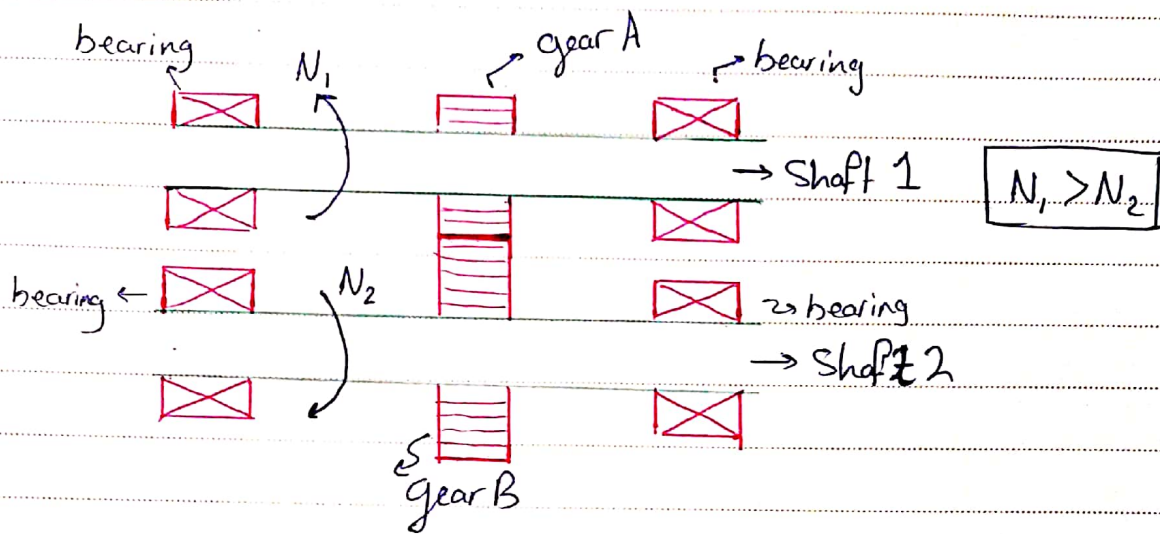 bearing
N₁
gear A
bearing
Shaft 1
N₁ > N₂
bearing
N₂
bearing
Shaft 2
gear B